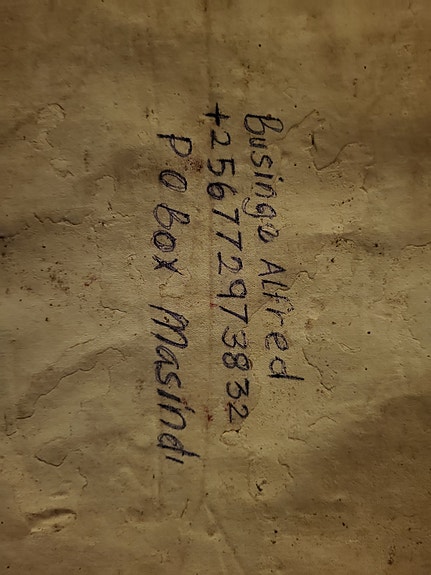 Businga Alfred
+256772973832
P O Box Masindi